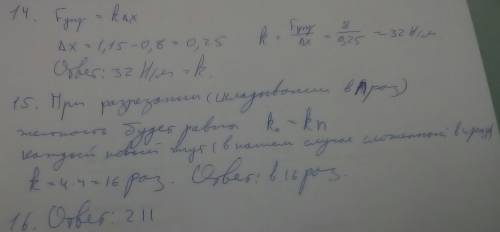 14. Fупр = kΔx
Δx = 1,15 - 0,8 = 0,25 k = Fупр/Δx = 8/0,25 = 32 Н/м
Ответ: 32 Н/м = k.
15. При разрезании (складывании в n раз)
жесткость будет равна k₀ = kn
каждый новый жгут (в нашем случае сложенный в
k = 4·4 = 16 раз. Ответ: в 16 раз.
16. Ответ: 211